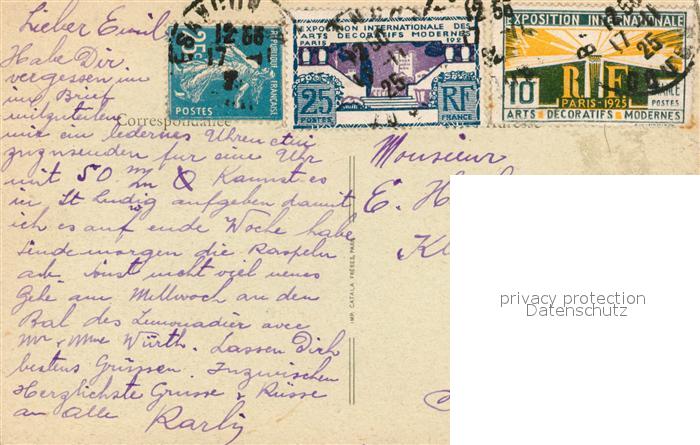 Lieber Emil
Habe Dir
vergessen im
Brief
mitzuteilen
mir ein ledernes Uhrenetui
zuzusenden für eine Uhr
mit 50 m/m Kannst es
in St Ludig aufgeben damit
ich es auf ende Woche habe
Sende morgen die Raspeln
ab sonst nicht viel neues
Gehe am Mittwoch an den
Bal des Limonadier avec
Mr & Mme Würth. Lassen Dich
bestens Grüssen. Inzwischen
Herzlichste Grusse & Küsse
an Alle
Correspondance
25c
POSTES
EXPOSITION INTERNATIONALE
ARTS DÉCORATIFS MODERNES
PARIS
25
RF
POSTES
FRANCE
EXPOSITION INTERNATIONALE
RF
PARIS-1925
10c
POSTES
ARTS DÉCORATIFS MODERNES
12 17 8 25
Adresse
Monsieur
E. H
K
IMP. CATALA FRÈRES, PARIS
privacy protection
Datenschutz